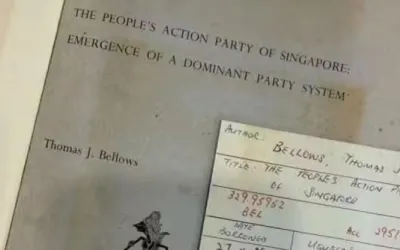 THE PEOPLE'S ACTION PARTY OF SINGAPORE:
EMERGENCE OF A DOMINANT PARTY SYSTEM
Thomas J. Bellows
AUTHOR:
BELLOWS, THOMAS J
TITLE: THE PEOPLE'S ACTION P
OF SINGAPORE
329.95952
BEL
ACC 3951
DATE
BORROWED